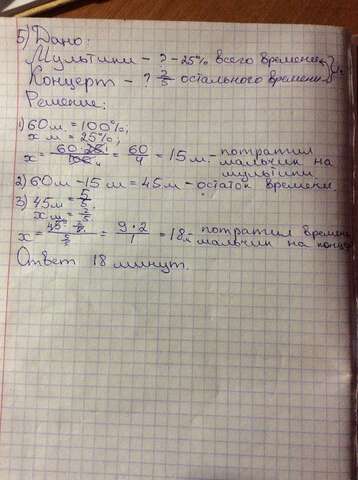 5) Дано:
Мультики - ? - 25% всего времени
Концерт - ? 2/5 остального времени
Решение:
1) 60 м = 100%;
x м = 25%;
x = 60·25/100 = 60/4 = 15 м. - потратил
мальчик на
мультики
2) 60 м - 15 м = 45 м - остаток времени.
3) 45 м = 5/5
x м = 2/5
x = 45·2/5 / 5/5 = 9·2/1 = 18 м - потратил времени
мальчик на конце
Ответ 18 минут.